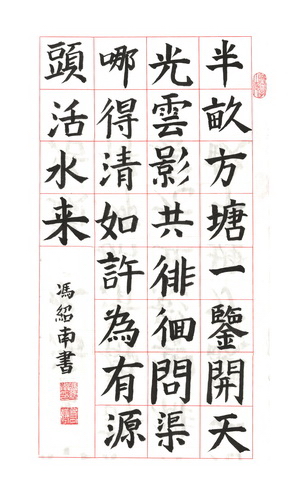 半畝方塘一鑒開天
光雲影共徘徊問渠
哪得清如許為有源
頭活水来
馮紹南書